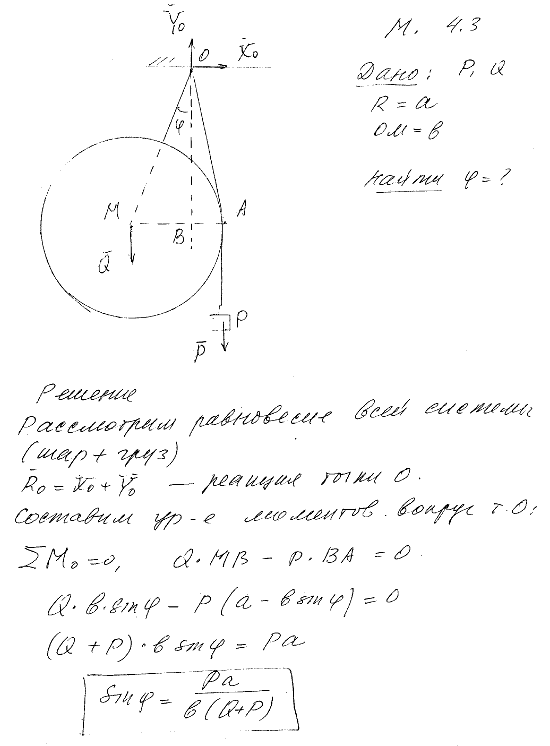 Ȳ₀
O
X̄₀
φ
M
B
A
Q̄
P
P̄
М. 4.3
Дано: P, Q
R = a
OM = в
Найти φ = ?
Решение
Рассмотрим равновесие всей системы
(шар + груз)
R̄₀ = X̄₀ + Ȳ₀ — реакция точки O.
Составим ур-е моментов вокруг т. O:
∑M₀ = 0, Q · MB − P · BA = 0.
Q · в · sin φ − P (a − в sin φ) = 0
(Q + P) · в sin φ = Pa
sin φ = Pa / в (Q+P)